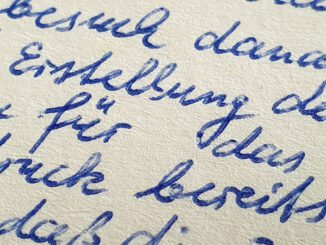 besuch dana
Erstellung de
für das
ruck bereits
daß di